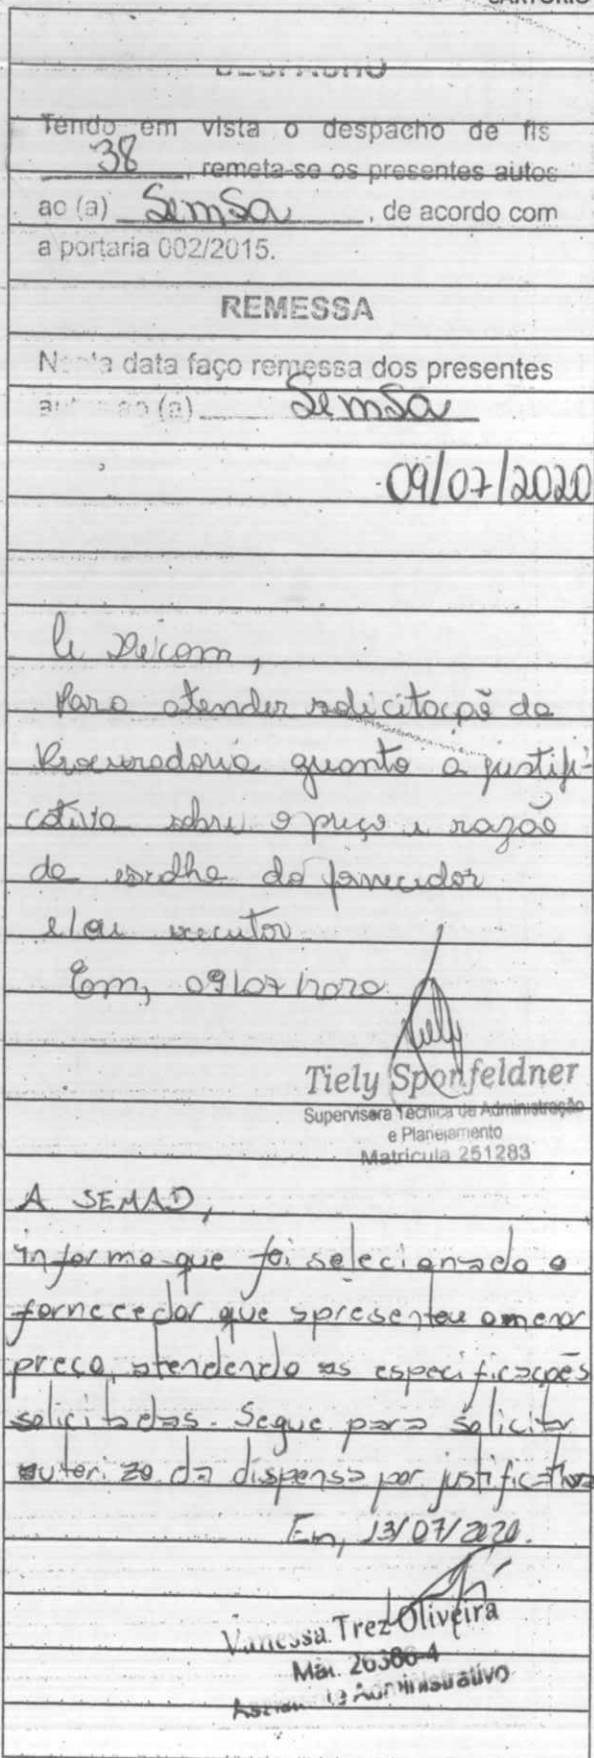 CARTÓRIO
DESPACHO
Tendo em vista o despacho de fls
38, remeta-se os presentes autos
ao (a) Semsa, de acordo com
a portaria 002/2015.
REMESSA
Nesta data faço remessa dos presentes
autos ao (a) Semsa
09/07/2020
Decom,
Para atender solicitação da
Procuradoria quanto a justifi-
cativa sobre o preço e razão
da escolha do fornecedor
e/ou executor
Em, 09/07/2020
Tiely Sponfeldner
Supervisora Técnica de Administração
e Planejamento
Matrícula 251283
A SEMAD,
informo que foi selecionado o
fornecedor que apresentou o menor
preço, atendendo as especificações
solicitadas. Segue para solicitar
da dispensa por justificativa
Em, 13/07/2020.
Vanessa Trez Oliveira
Mat. 26386-4
Administrativo